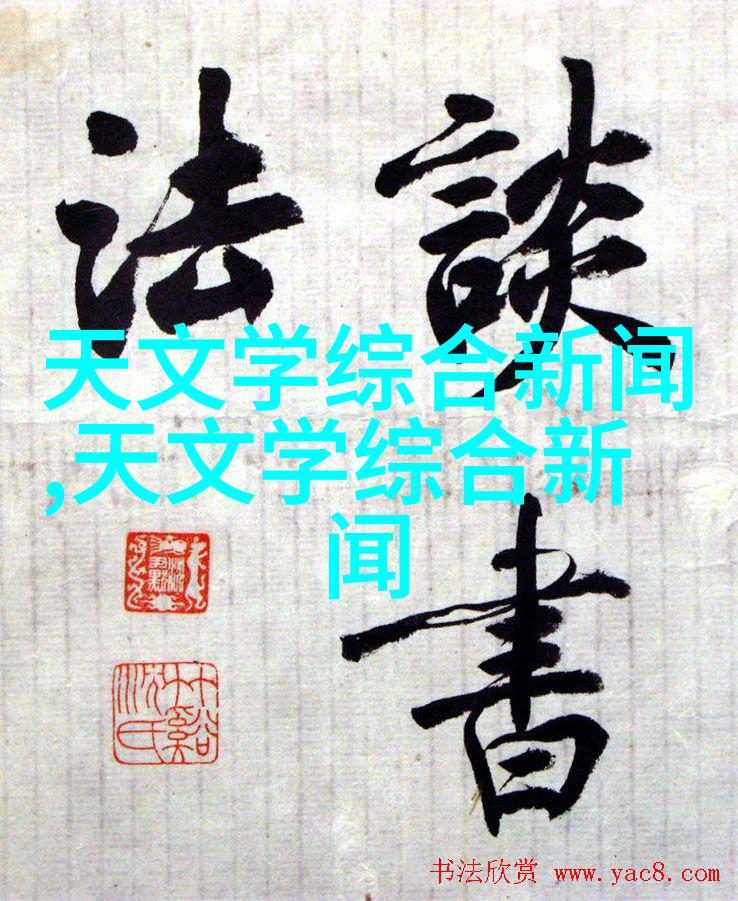 談書
法
天文学综合新闻
,天文学综合新
闻
书法欣赏 www.yac8.com